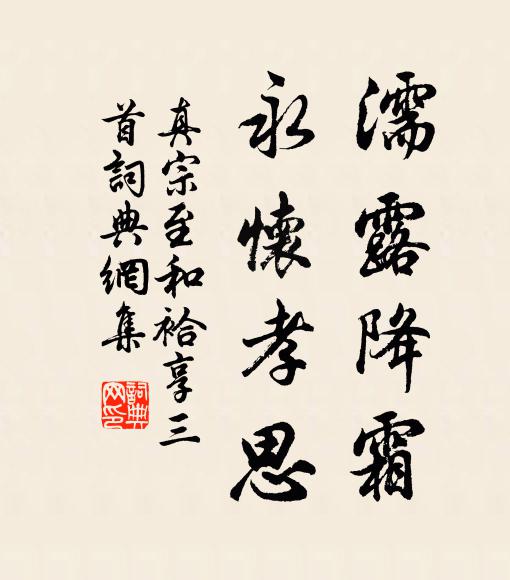 濡露降霜
永懷孝思
真宗至和祫享三
首詞典網集
詞典
网印